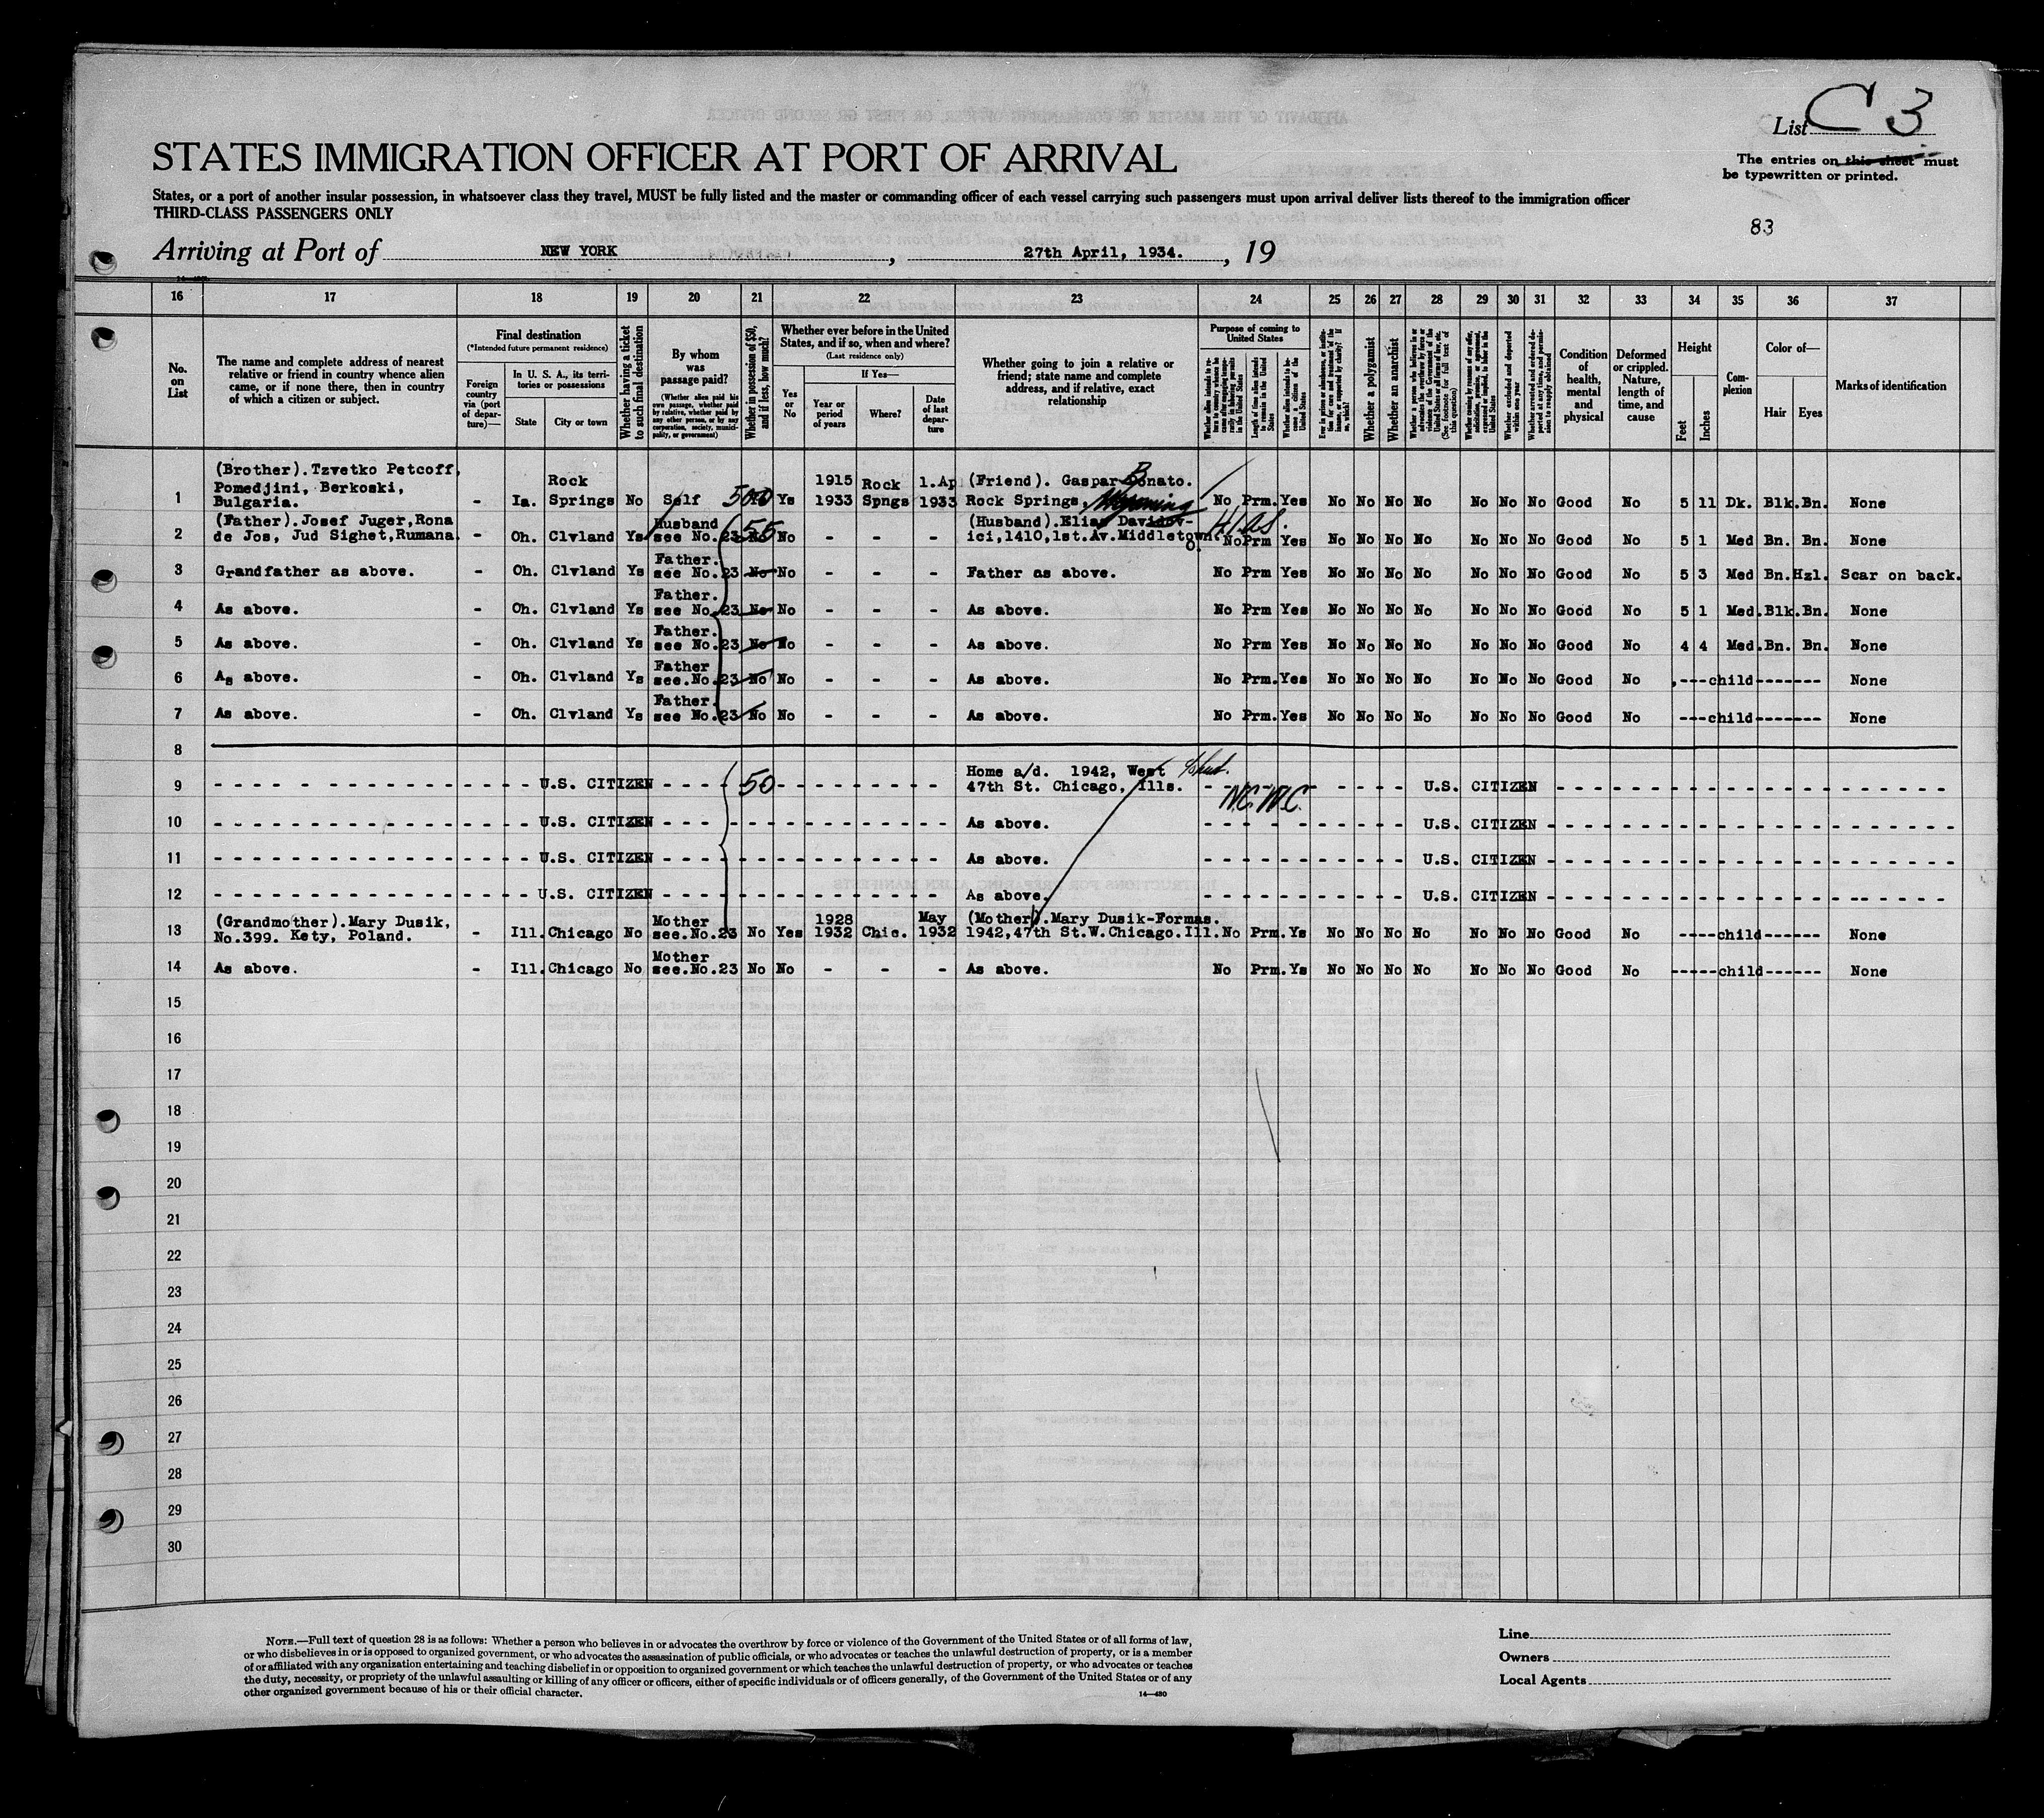 List C 3
STATES IMMIGRATION OFFICER AT PORT OF ARRIVAL
The entries on this sheet must
be typewritten or printed.
States, or a port of another insular possession, in whatsoever class they travel, MUST be fully listed and the master or commanding officer of each vessel carrying such passengers must upon arrival deliver lists thereof to the immigration officer
THIRD-CLASS PASSENGERS ONLY
83
Arriving at Port of NEW YORK, 27th April, 1934., 19
16 17 18 19 20 21 22 23 24 25 26 27 28 29 30 31 32 33 34 35 36 37
No. on List
The name and complete address of nearest relative or friend in country whence alien came, or if none there, then in country of which a citizen or subject.
Final destination
(*Intended future permanent residence)
Foreign country via (port of departure)—
In U. S. A., its territories or possessions
State
City or town
Whether having a ticket to such final destination
By whom was passage paid?
(Whether alien paid his own passage, whether paid by relative, whether paid by any other person, or by any corporation, society, municipality, or government)
Whether in possession of $50, and if less, how much?
Whether ever before in the United States, and if so, when and where?
(Last residence only)
Yes or No
If Yes—
Year or period of years
Where?
Date of last departure
Whether going to join a relative or friend; state name and complete address, and if relative, exact relationship
Purpose of coming to United States
Whether a polygamist
Whether an anarchist
Condition of health, mental and physical
Deformed or crippled. Nature, length of time, and cause
Height
Feet
Inches
Complexion
Color of—
Hair
Eyes
Marks of identification
1 (Brother). Tzvetko Petcoff, Pomedjini, Berkoski, Bulgaria. - Ia. Rock Springs No Self 500 Ys 1915 1933 Rock Spngs 1.Ap 1933 (Friend). Gaspar Bonato. Rock Springs, Wyoming No Prm. Yes No No No No No No No Good No 5 11 Dk. Blk. Bn. None
2 (Father). Josef Juger, Rona de Jos, Jud Sighet, Rumana. - Oh. Clvland Ys Husband see No. 23 55 No - - - (Husband). Elias Davidovici, 1410, 1st. Av. Middletown O. HIAS. No Prm Yes No No No No No No No Good No 5 1 Med Bn. Bn. None
3 Grandfather as above. - Oh. Clvland Ys Father. see No. 23 No No - - - Father as above. No Prm Yes No No No No No No No Good No 5 3 Med Bn. Hzl. Scar on back.
4 As above. - Oh. Clvland Ys Father. see No. 23 No No - - - As above. No Prm Yes No No No No No No No Good No 5 1 Med. Blk. Bn. None
5 As above. - Oh. Clvland Ys Father. see No. 23 No No - - - As above. No Prm Yes No No No No No No No Good No 4 4 Med. Bn. Bn. None
6 As above. - Oh. Clvland Ys Father see. No. 23 No No - - - As above. No Prm. Yes No No No No No No No Good No ---child------- None
7 As above. - Oh. Clvland Ys Father. see No. 23 No No - - - As above. No Prm. Yes No No No No No No No Good No ---child------- None
8
9 U.S. CITIZEN 50 Home a/d. 1942, West 47th St. Chicago, Ills. N.C.W.C. U.S. CITIZEN
10 U.S. CITIZEN As above. U.S. CITIZEN
11 U.S. CITIZEN As above. U.S. CITIZEN
12 U.S. CITIZEN As above. U.S. CITIZEN
13 (Grandmother). Mary Dusik, No. 399. Kety, Poland. - Ill. Chicago No Mother see. No. 23 No Yes 1928 1932 Chic. May 1932 (Mother). Mary Dusik-Formas. 1942, 47th St. W. Chicago. Ill. No Prm. Ys No No No No No No No Good No ----child------ None
14 As above. - Ill. Chicago No Mother see. No. 23 No No - - - As above. No Prm. Ys No No No No No No No Good No -----child------ None
15
16
17
18
19
20
21
22
23
24
25
26
27
28
29
30
NOTE.—Full text of question 28 is as follows: Whether a person who believes in or advocates the overthrow by force or violence of the Government of the United States or of all forms of law,
or who disbelieves in or is opposed to organized government, or who advocates the assassination of public officials, or who advocates or teaches the unlawful destruction of property, or is a member
of or affiliated with any organization entertaining and teaching disbelief in or opposition to organized government or which teaches the unlawful destruction of property, or who advocates or teaches
the duty, necessity, or propriety of the unlawful assaulting or killing of any officer or officers, either of specific individuals or of officers generally, of the Government of the United States or of any
other organized government because of his or their official character.
14—480
Line
Owners
Local Agents